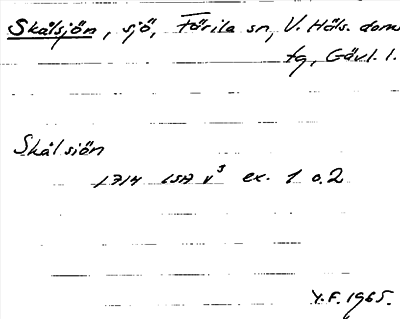 Skålsjön, sjö, Färila sn, V. Häls. doms
tg, Gävl. l.
Skålsiön
1714 LSA V3 ex. 1 o. 2
Y.F. 1965.